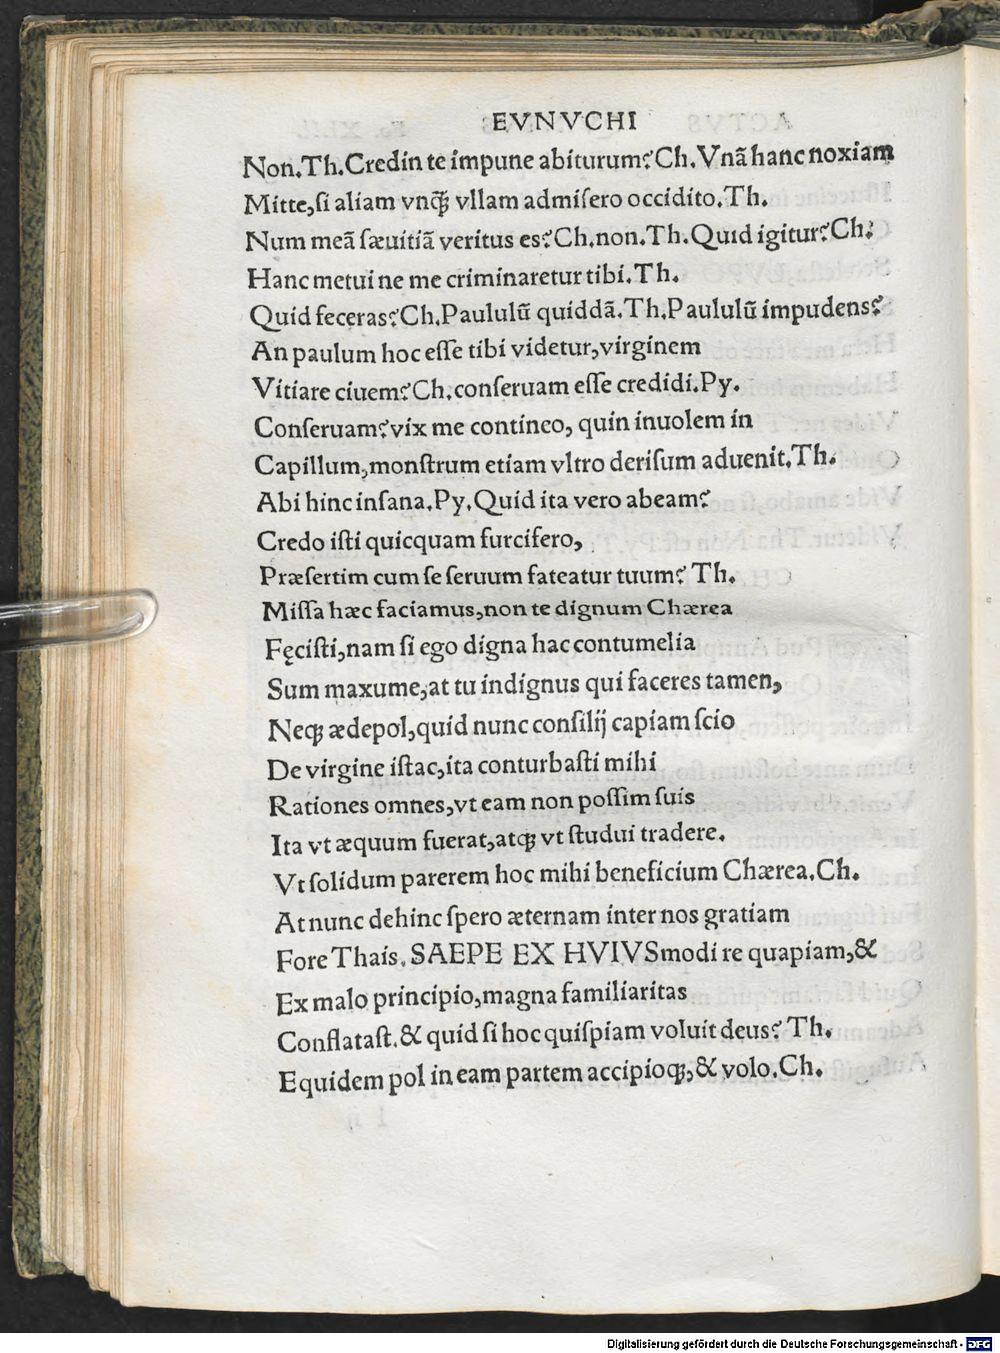 EVNVCHI
Non.Th.Credin te impune abiturum? Ch.Vnã hanc noxiam
Mitte,ſi aliam vnqꝫ vllam admiſero occidito.Th.
Num meã ſæuitiã veritus es? Ch.non.Th.Quid igitur? Ch.
Hanc metui ne me criminaretur tibi.Th.
Quid feceras? Ch.Paululũ quiddã.Th.Paululũ impudens?
An paulum hoc eſſe tibi videtur,virginem
Vitiare ciuem? Ch.conſeruam eſſe credidi.Py.
Conſeruam? vix me contineo, quin inuolem in
Capillum,monſtrum etiam vltro deriſum aduenit.Th.
Abi hinc inſana.Py.Quid ita vero abeam?
Credo iſti quicquam furcifero,
Præſertim cum ſe ſeruum fateatur tuum? Th.
Miſſa hæc faciamus,non te dignum Chærea
Fęciſti,nam ſi ego digna hac contumelia
Sum maxume,at tu indignus qui faceres tamen,
Neqꝫ ædepol,quid nunc conſilij capiam ſcio
De virgine iſtac,ita conturbaſti mihi
Rationes omnes,vt eam non poſſim ſuis
Ita vt æquum fuerat,atqꝫ vt ſtudui tradere.
Vt ſolidum parerem hoc mihi beneficium Chærea.Ch.
At nunc dehinc ſpero æternam inter nos gratiam
Fore Thais. SAEPE EX HVIVSmodi re quapiam,&
Ex malo principio,magna familiaritas
Conflataſt.& quid ſi hoc quiſpiam voluit deus? Th.
Equidem pol in eam partem accipioqꝫ,& volo.Ch.
Digitalisierung gefördert durch die Deutsche Forschungsgemeinschaft - DFG